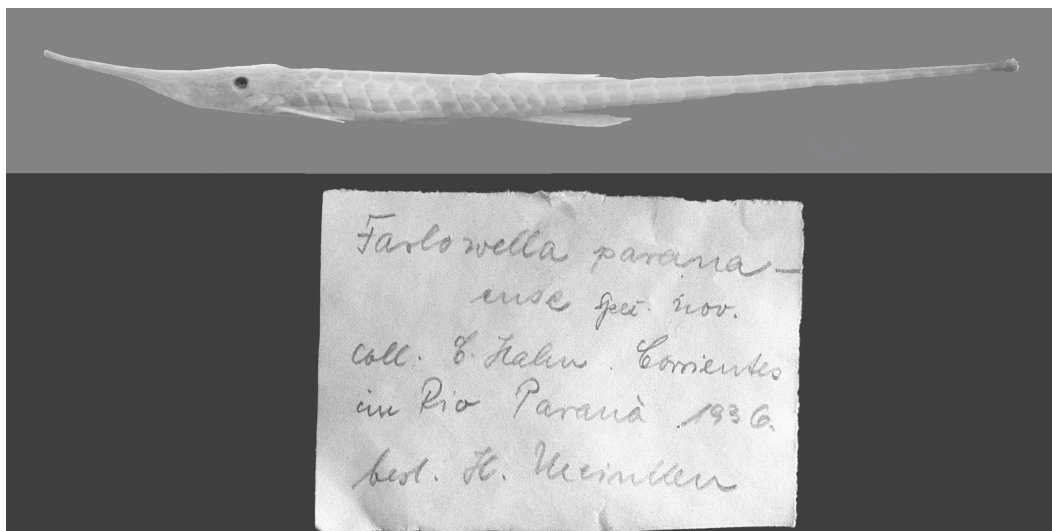 Farlowella parana–
ense spec. nov.
coll. C. Hahn. Corrientes
im Rio Paranà 1936.
best. H. Meinken